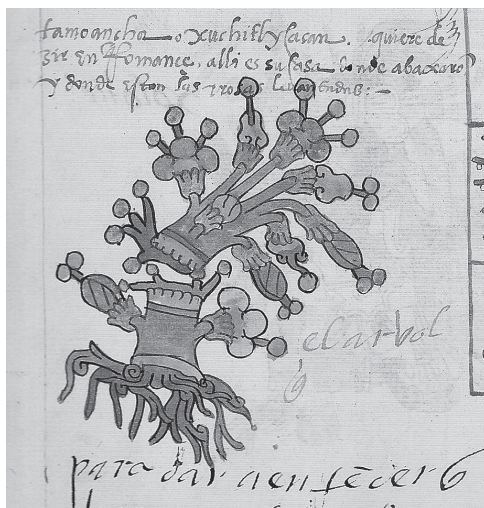 tamoancha o xuchitlycacan. quiere de
zir en Romance, alli es su casa donde abaxaro
y donde estan sus rosas levantadas: —
el arbol
para dar a entēder